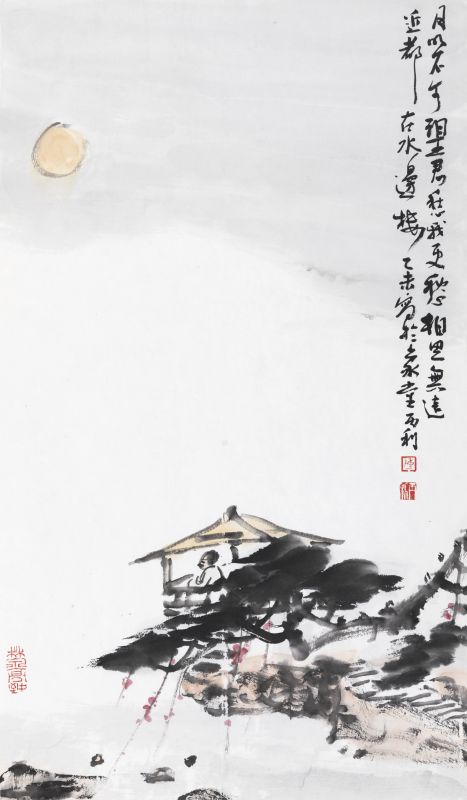 月明不可望君愁我更愁相思無遠
近都在水邊樓乙未寫於